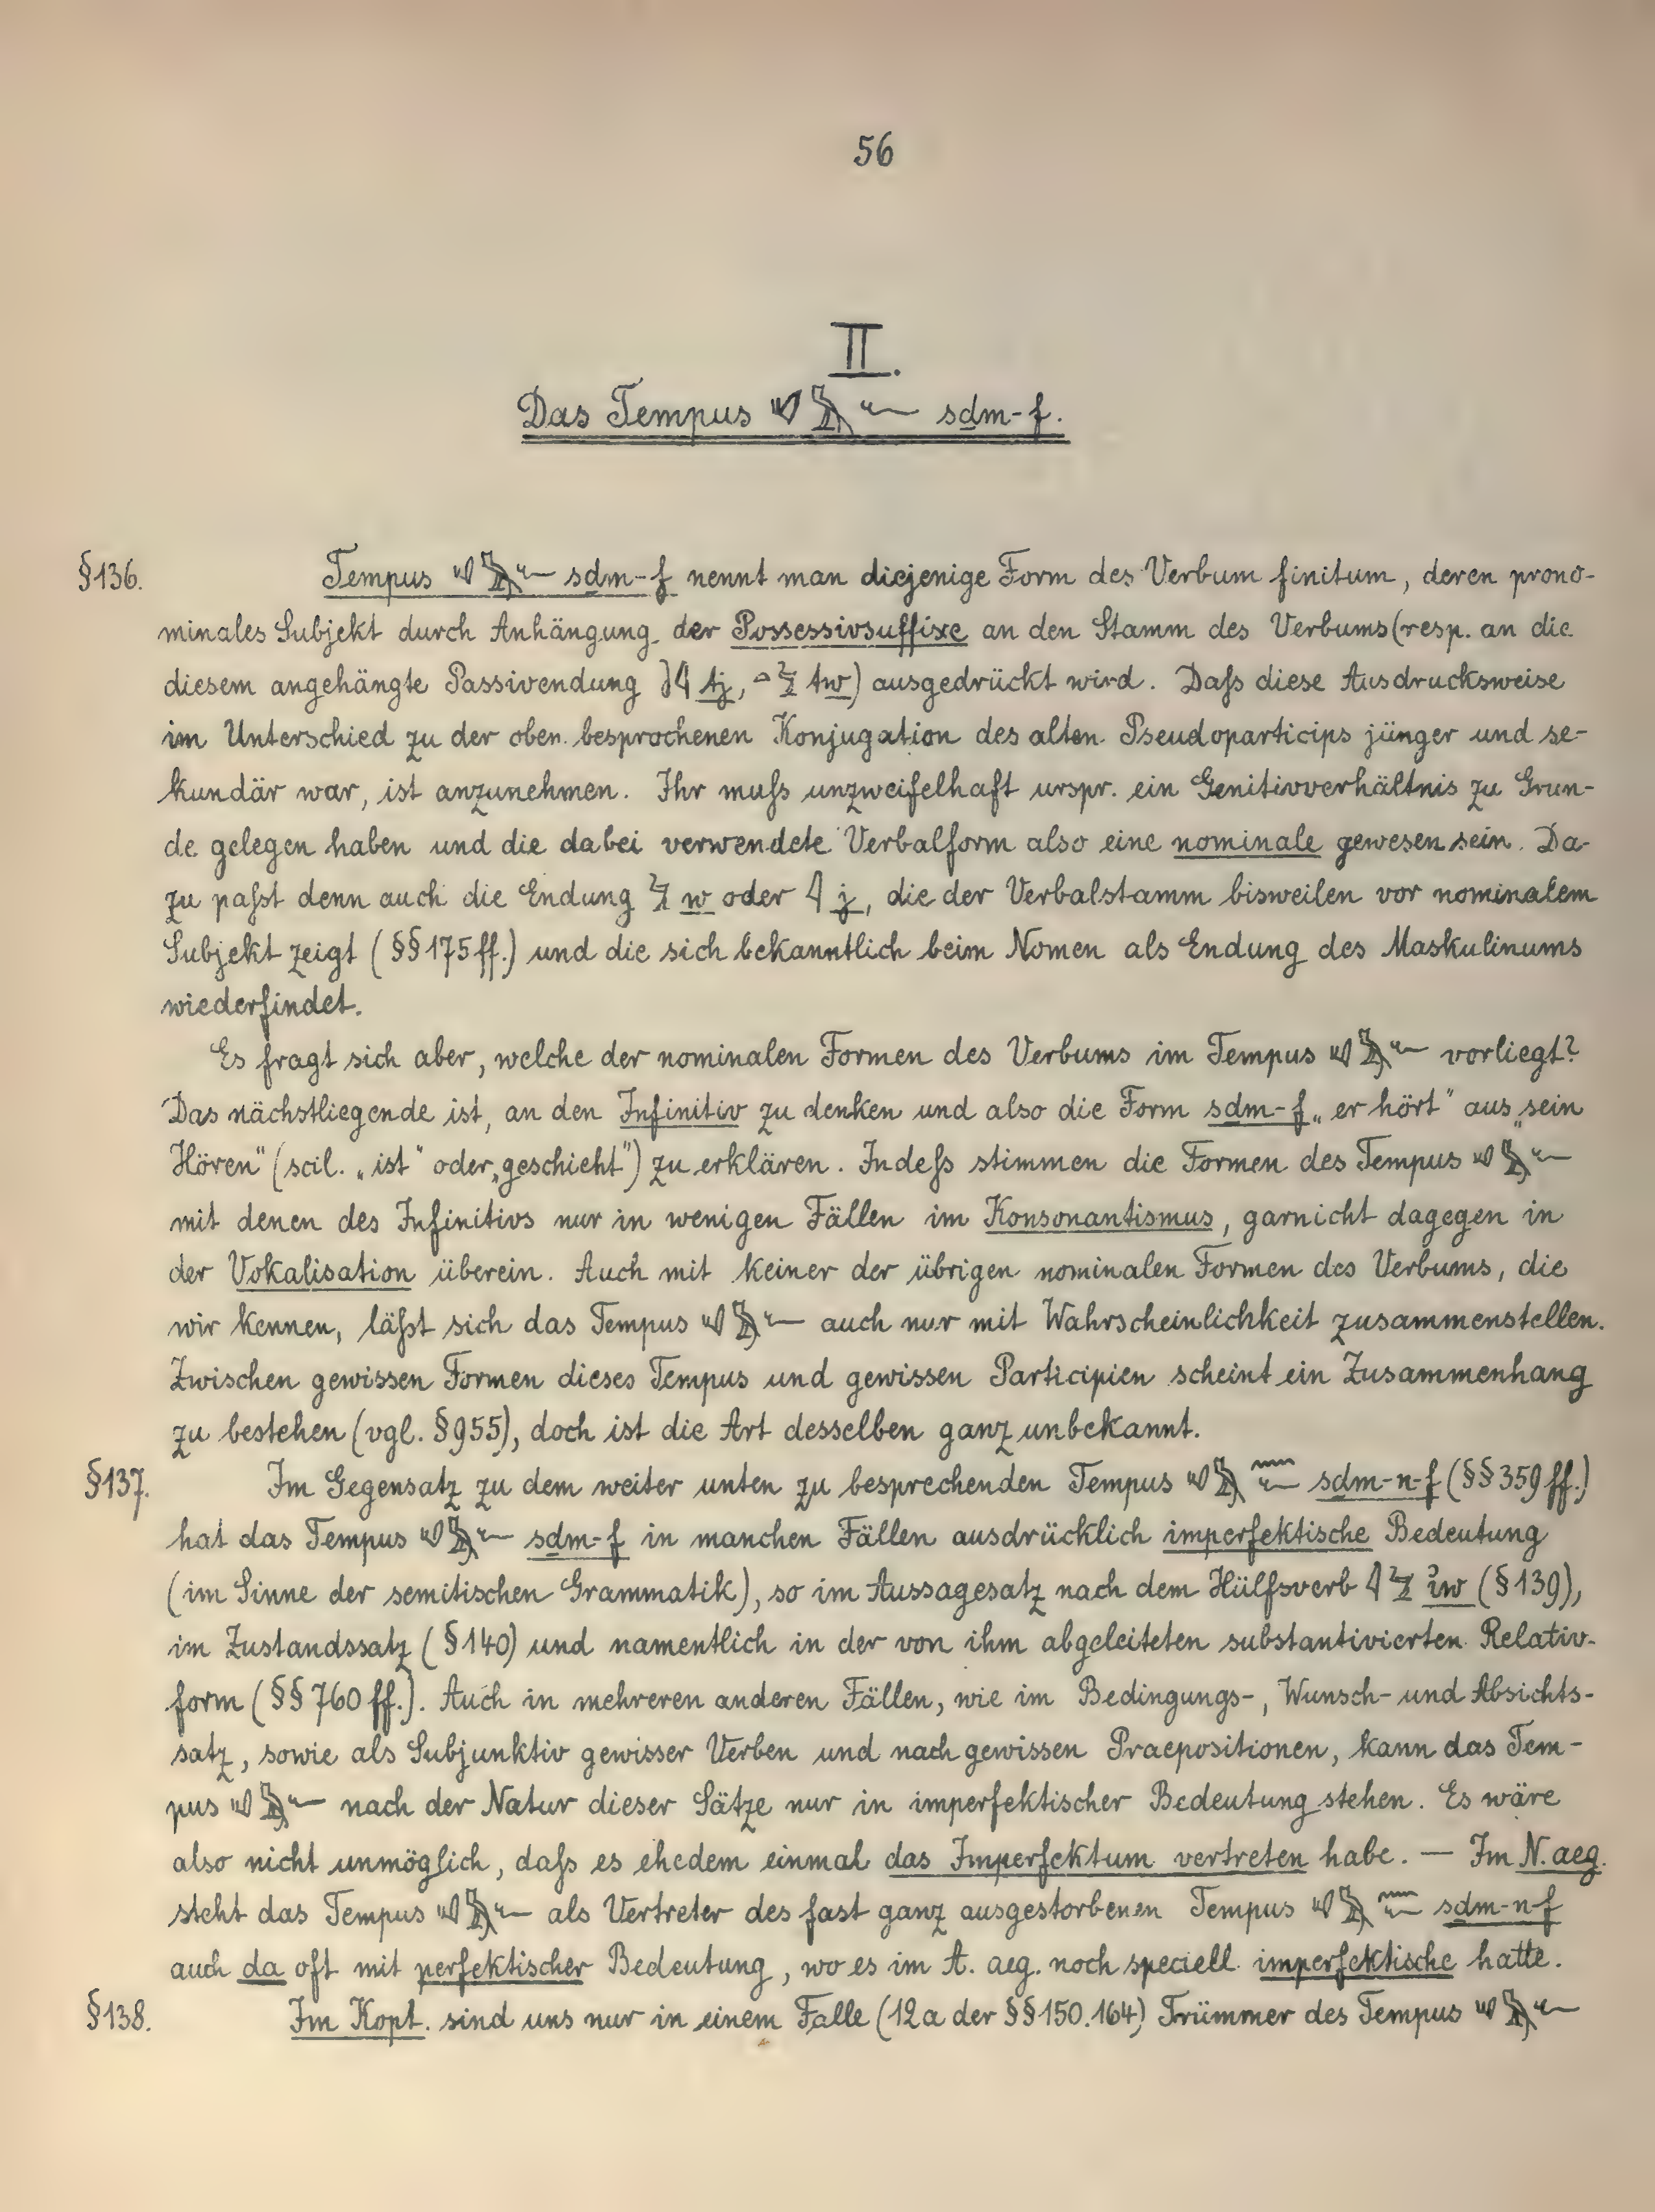 56
II.
Das Tempus 𓄔𓅓𓆑 sḏm-f.
§136. Tempus 𓄔𓅓𓆑 sḏm-f nennt man diejenige Form des Verbum finitum, deren prono-
minales Subjekt durch Anhängung der Possessivsuffixe an den Stamm des Verbums (resp. an die
diesem angehängte Passivendung 𓍘𓇋 tj, 𓏏𓅱 tw) ausgedrückt wird. Daſs diese Ausdrucksweise
im Unterschied zu der oben besprochenen Konjugation des alten Pseudoparticips jünger und se-
kundär war, ist anzunehmen. Ihr muſs unzweifelhaft urspr. ein Genitivverhältnis zu Grun-
de gelegen haben und die dabei verwendete Verbalform also eine nominale gewesen sein. Da-
zu paſst denn auch die Endung 𓅱 w oder 𓇋 j, die der Verbalstamm bisweilen vor nominalem
Subjekt zeigt (§§175ff.) und die sich bekanntlich beim Nomen als Endung des Maskulinums
wiederfindet.
Es fragt sich aber, welche der nominalen Formen des Verbums im Tempus 𓄔𓅓𓆑 vorliegt?
Das nächstliegende ist, an den Infinitiv zu denken und also die Form sḏm-f „er hört“ aus „sein
Hören“ (scil. „ist“ oder „geschieht“) zu erklären. Indeſs stimmen die Formen des Tempus 𓄔𓅓𓆑
mit denen des Infinitivs nur in wenigen Fällen im Konsonantismus, garnicht dagegen in
der Vokalisation überein. Auch mit keiner der übrigen nominalen Formen des Verbums, die
wir kennen, läſst sich das Tempus 𓄔𓅓𓆑 auch nur mit Wahrscheinlichkeit zusammenstellen.
Zwischen gewissen Formen dieses Tempus und gewissen Participien scheint ein Zusammenhang
zu bestehen (vgl. §955), doch ist die Art desselben ganz unbekannt.
§137. Im Gegensatz zu dem weiter unten zu besprechenden Tempus 𓄔𓅓𓈖𓆑 sḏm-n-f (§§359ff.)
hat das Tempus 𓄔𓅓𓆑 sḏm-f in manchen Fällen ausdrücklich imperfektische Bedeutung
(im Sinne der semitischen Grammatik), so im Aussagesatz nach dem Hülfsverb 𓇋𓅱 ỉw (§139),
im Zustandssatz (§140) und namentlich in der von ihm abgeleiteten substantivierten Relativ-
form (§§760ff.). Auch in mehreren anderen Fällen, wie im Bedingungs-, Wunsch- und Absichts-
satz, sowie als Subjunktiv gewisser Verben und nach gewissen Praepositionen, kann das Tem-
pus 𓄔𓅓𓆑 nach der Natur dieser Sätze nur in imperfektischer Bedeutung stehen. Es wäre
also nicht unmöglich, daſs es ehedem einmal das Imperfektum vertreten habe. — Im N. aeg.
steht das Tempus 𓄔𓅓𓆑 als Vertreter des fast ganz ausgestorbenen Tempus 𓄔𓅓𓈖𓆑 sḏm-n-f
auch da oft mit perfektischer Bedeutung, wo es im A. aeg. noch speciell imperfektische hatte.
§138. Im Kopt. sind uns nur in einem Falle (12a der §§150.164) Trümmer des Tempus 𓄔𓅓𓆑